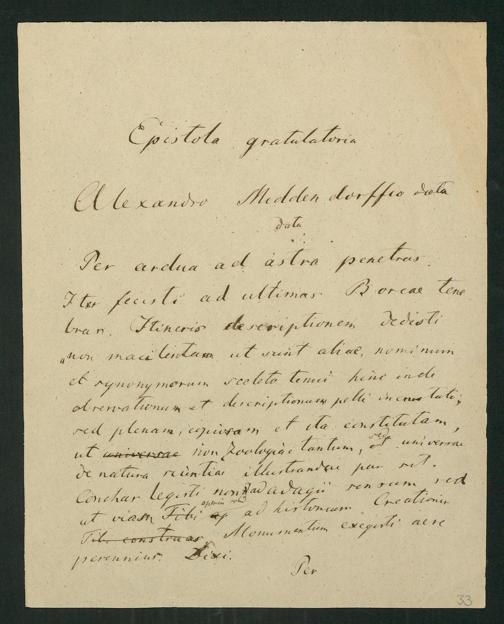 Epistola gratulatoria
Alexandro Middendorffio data
data
Per ardua ad astra penetras.
Iter fecisti ad ultimas Boreae tene
bras. Itineris descriptionem dedisti
„non macilentam ut sunt aliae, nominum
et synonymorum sceleta tenui hinc inde
observationum et descriptionum pelli incrustata;
sed plenam, copiosam et ita constitutam,
ut universae non Zoologiae tantum, sed universae
de natura scientiae illustrandae par sit.
Conchas legisti non ad adagii sensum sed
ut viam Tibi ad historiam Creationis
Tibi construas Monumentum exegisti aere
perennius. Dixi.
Per
33